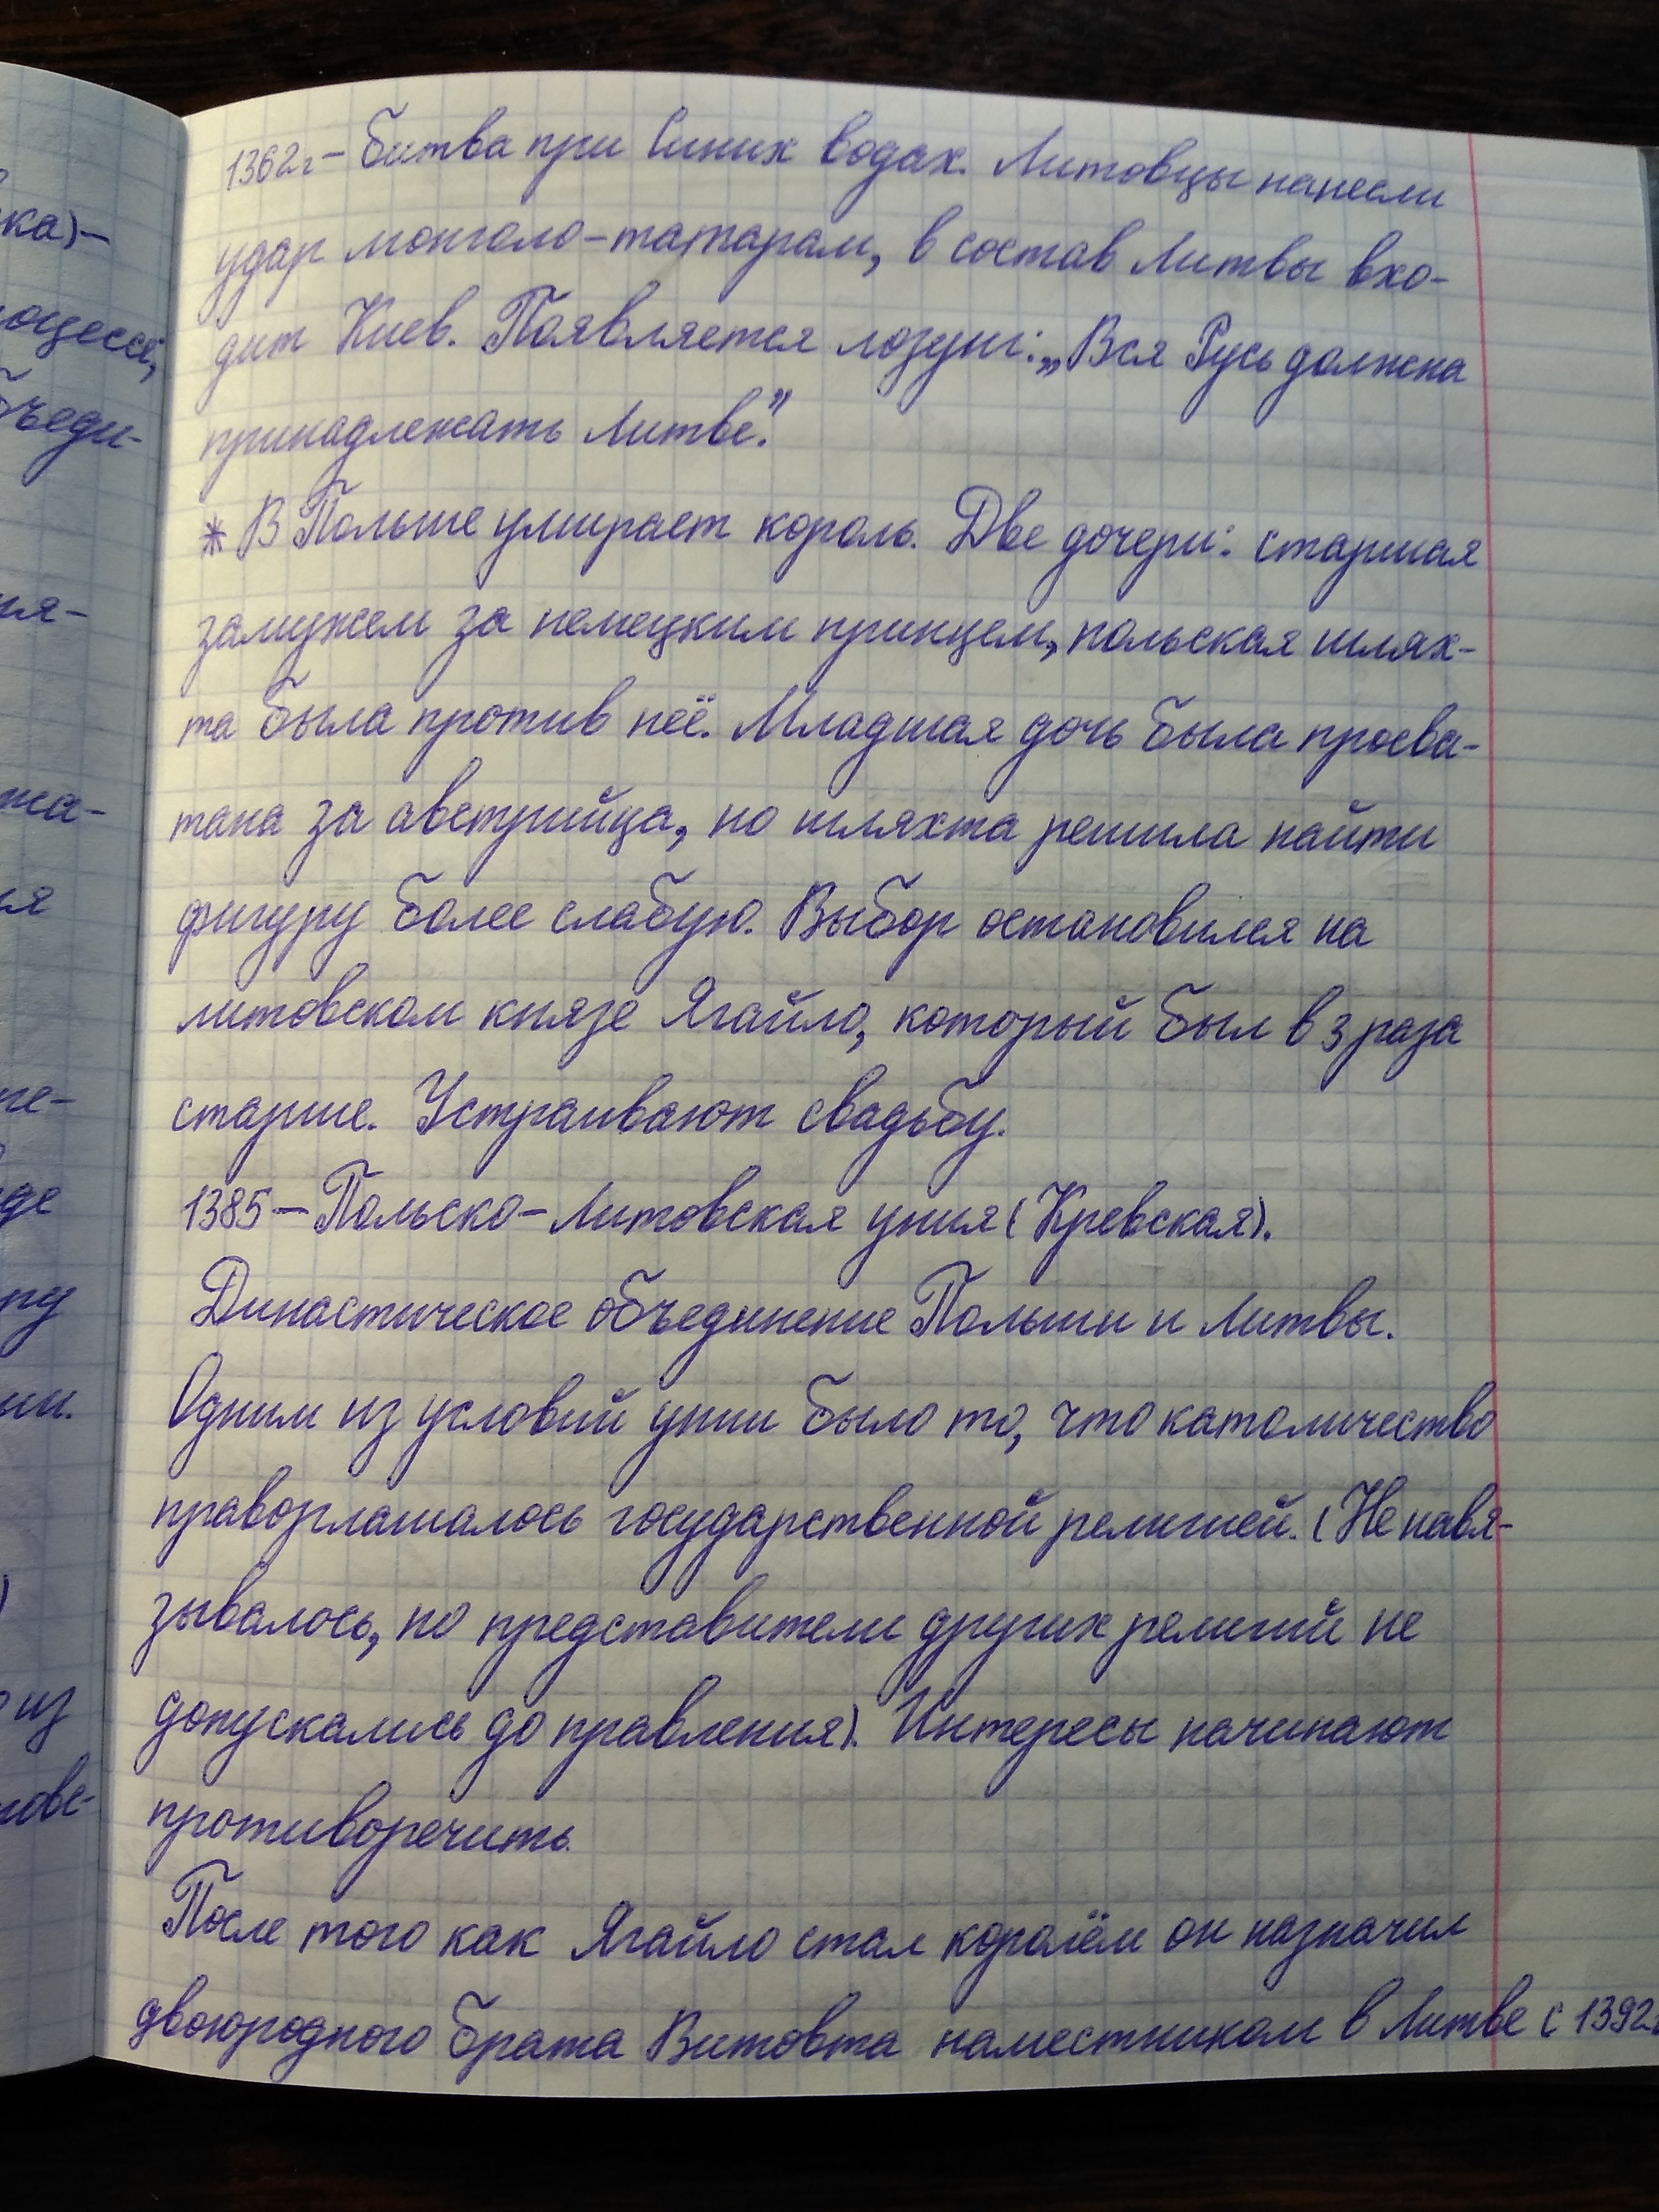 ка)–
оцессе,
ъеди-
1362г – битва при Синих водах. Литовцы нанесли
удар монголо-татарам, в состав Литвы вхо-
дит Киев. Появляется лозунг: „Вся Русь должна
принадлежать Литве."
* В Польше умирает король. Две дочери: старшая
замужем за немецким принцем, польская шлях-
та была против неё. Младшая дочь была просва-
тана за австрийца, но шляхта решила найти
фигуру более слабую. Выбор остановился на
литовском князе Ягайло, который был в 3 раза
старше. Устраивают свадьбу.
1385 – Польско-Литовская уния (Кревская).
Династическое объединение Польши и Литвы.
Одним из условий унии было то, что католичество
праворглашалось государственной религией. (Не навя-
зывалось, но представители других религий не
допускались до правления). Интересы начинают
противоречить.
После того как Ягайло стал королём он назначил
двоюродного брата Витовта наместником в Литве с 1392г